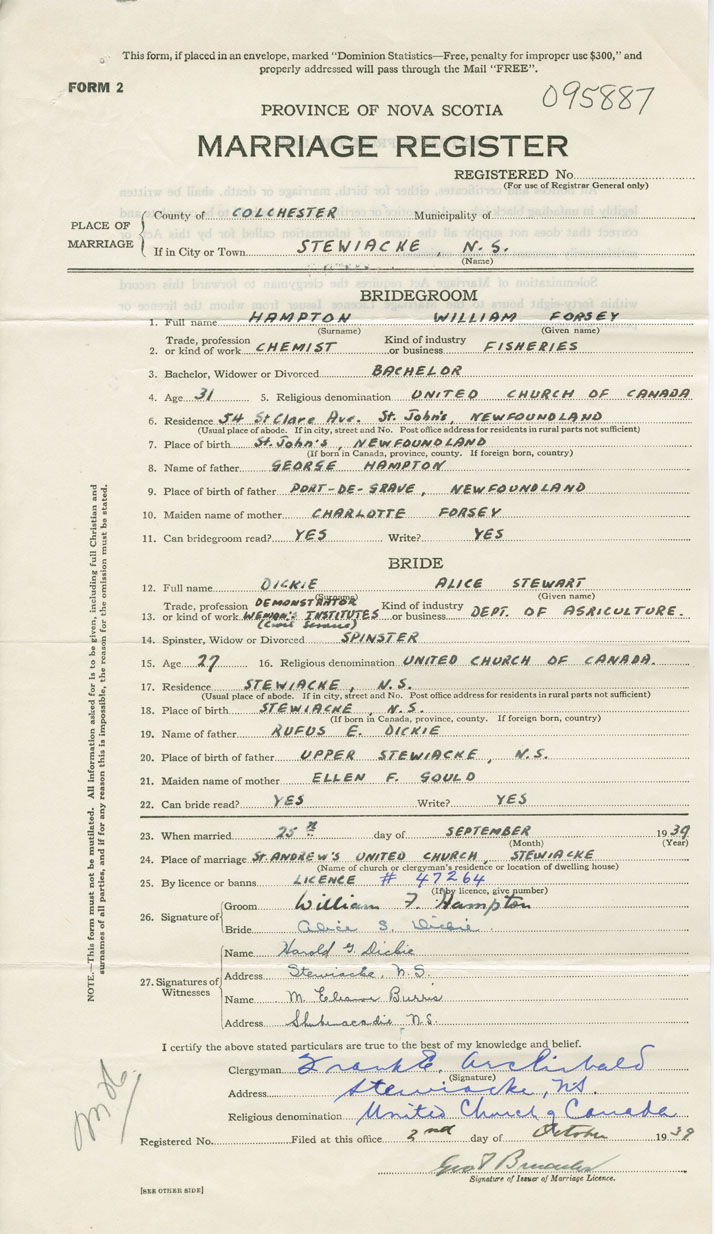 This form, if placed in an envelope, marked "Dominion Statistics—Free, penalty for improper use $300," and
properly addressed will pass through the Mail "FREE".
FORM 2
095887
PROVINCE OF NOVA SCOTIA
MARRIAGE REGISTER
REGISTERED No.
(For use of Registrar General only)
PLACE OF MARRIAGE
County of COLCHESTER Municipality of
If in City or Town STEWIACKE, N.S.
(Name)
BRIDEGROOM
1. Full name HAMPTON WILLIAM FORSEY
(Surname) (Given name)
2. Trade, profession or kind of work CHEMIST Kind of industry or business FISHERIES
3. Bachelor, Widower or Divorced BACHELOR
4. Age 31 5. Religious denomination UNITED CHURCH OF CANADA
6. Residence 54 St Clare Ave. St. John's, NEWFOUNDLAND
(Usual place of abode. If in city, street and No. Post office address for residents in rural parts not sufficient)
7. Place of birth St. John's, NEWFOUNDLAND
(If born in Canada, province, county. If foreign born, country)
8. Name of father GEORGE HAMPTON
9. Place of birth of father PORT-DE-GRAVE, NEWFOUNDLAND
10. Maiden name of mother CHARLOTTE FORSEY
11. Can bridegroom read? YES Write? YES
BRIDE
12. Full name DICKIE ALICE STEWART
(Surname) (Given name)
13. Trade, profession or kind of work DEMONSTRATOR WEMON'S INSTITUTES (Civil Servant) Kind of industry or business DEPT. OF AGRICULTURE.
14. Spinster, Widow or Divorced SPINSTER
15. Age 27 16. Religious denomination UNITED CHURCH OF CANADA.
17. Residence STEWIACKE, N.S.
(Usual place of abode. If in city, street and No. Post office address for residents in rural parts not sufficient)
18. Place of birth STEWIACKE, N.S.
(If born in Canada, province, county. If foreign born, country)
19. Name of father RUFUS E. DICKIE
20. Place of birth of father UPPER STEWIACKE, N.S.
21. Maiden name of mother ELLEN F. GOULD
22. Can bride read? YES Write? YES
23. When married 25 day of SEPTEMBER 1939
(Month) (Year)
24. Place of marriage St. ANDREW'S UNITED CHURCH, STEWIACKE
(Name of church or clergyman's residence or location of dwelling house)
25. By licence or banns LICENCE # 47264
(If by licence, give number)
26. Signature of
Groom William F. Hampton
Bride Alice S. Dickie
27. Signatures of Witnesses
Name Harold G. Dickie
Address Stewiacke, N.S.
Name M. Eleanor Burris
Address Shubenacadie, N.S.
I certify the above stated particulars are true to the best of my knowledge and belief.
Clergyman Frank E. Archibald
(Signature)
Address Stewiacke, N.S.
Religious denomination United Church of Canada
Registered No. Filed at this office 2nd day of October 1939
Geo
Signature of Issuer of Marriage Licence.
[SEE OTHER SIDE]
NOTE.—This form must not be mutilated. All information asked for is to be given, including full Christian and
surnames of all parties, and if for any reason this is impossible, the reason for the omission must be stated.